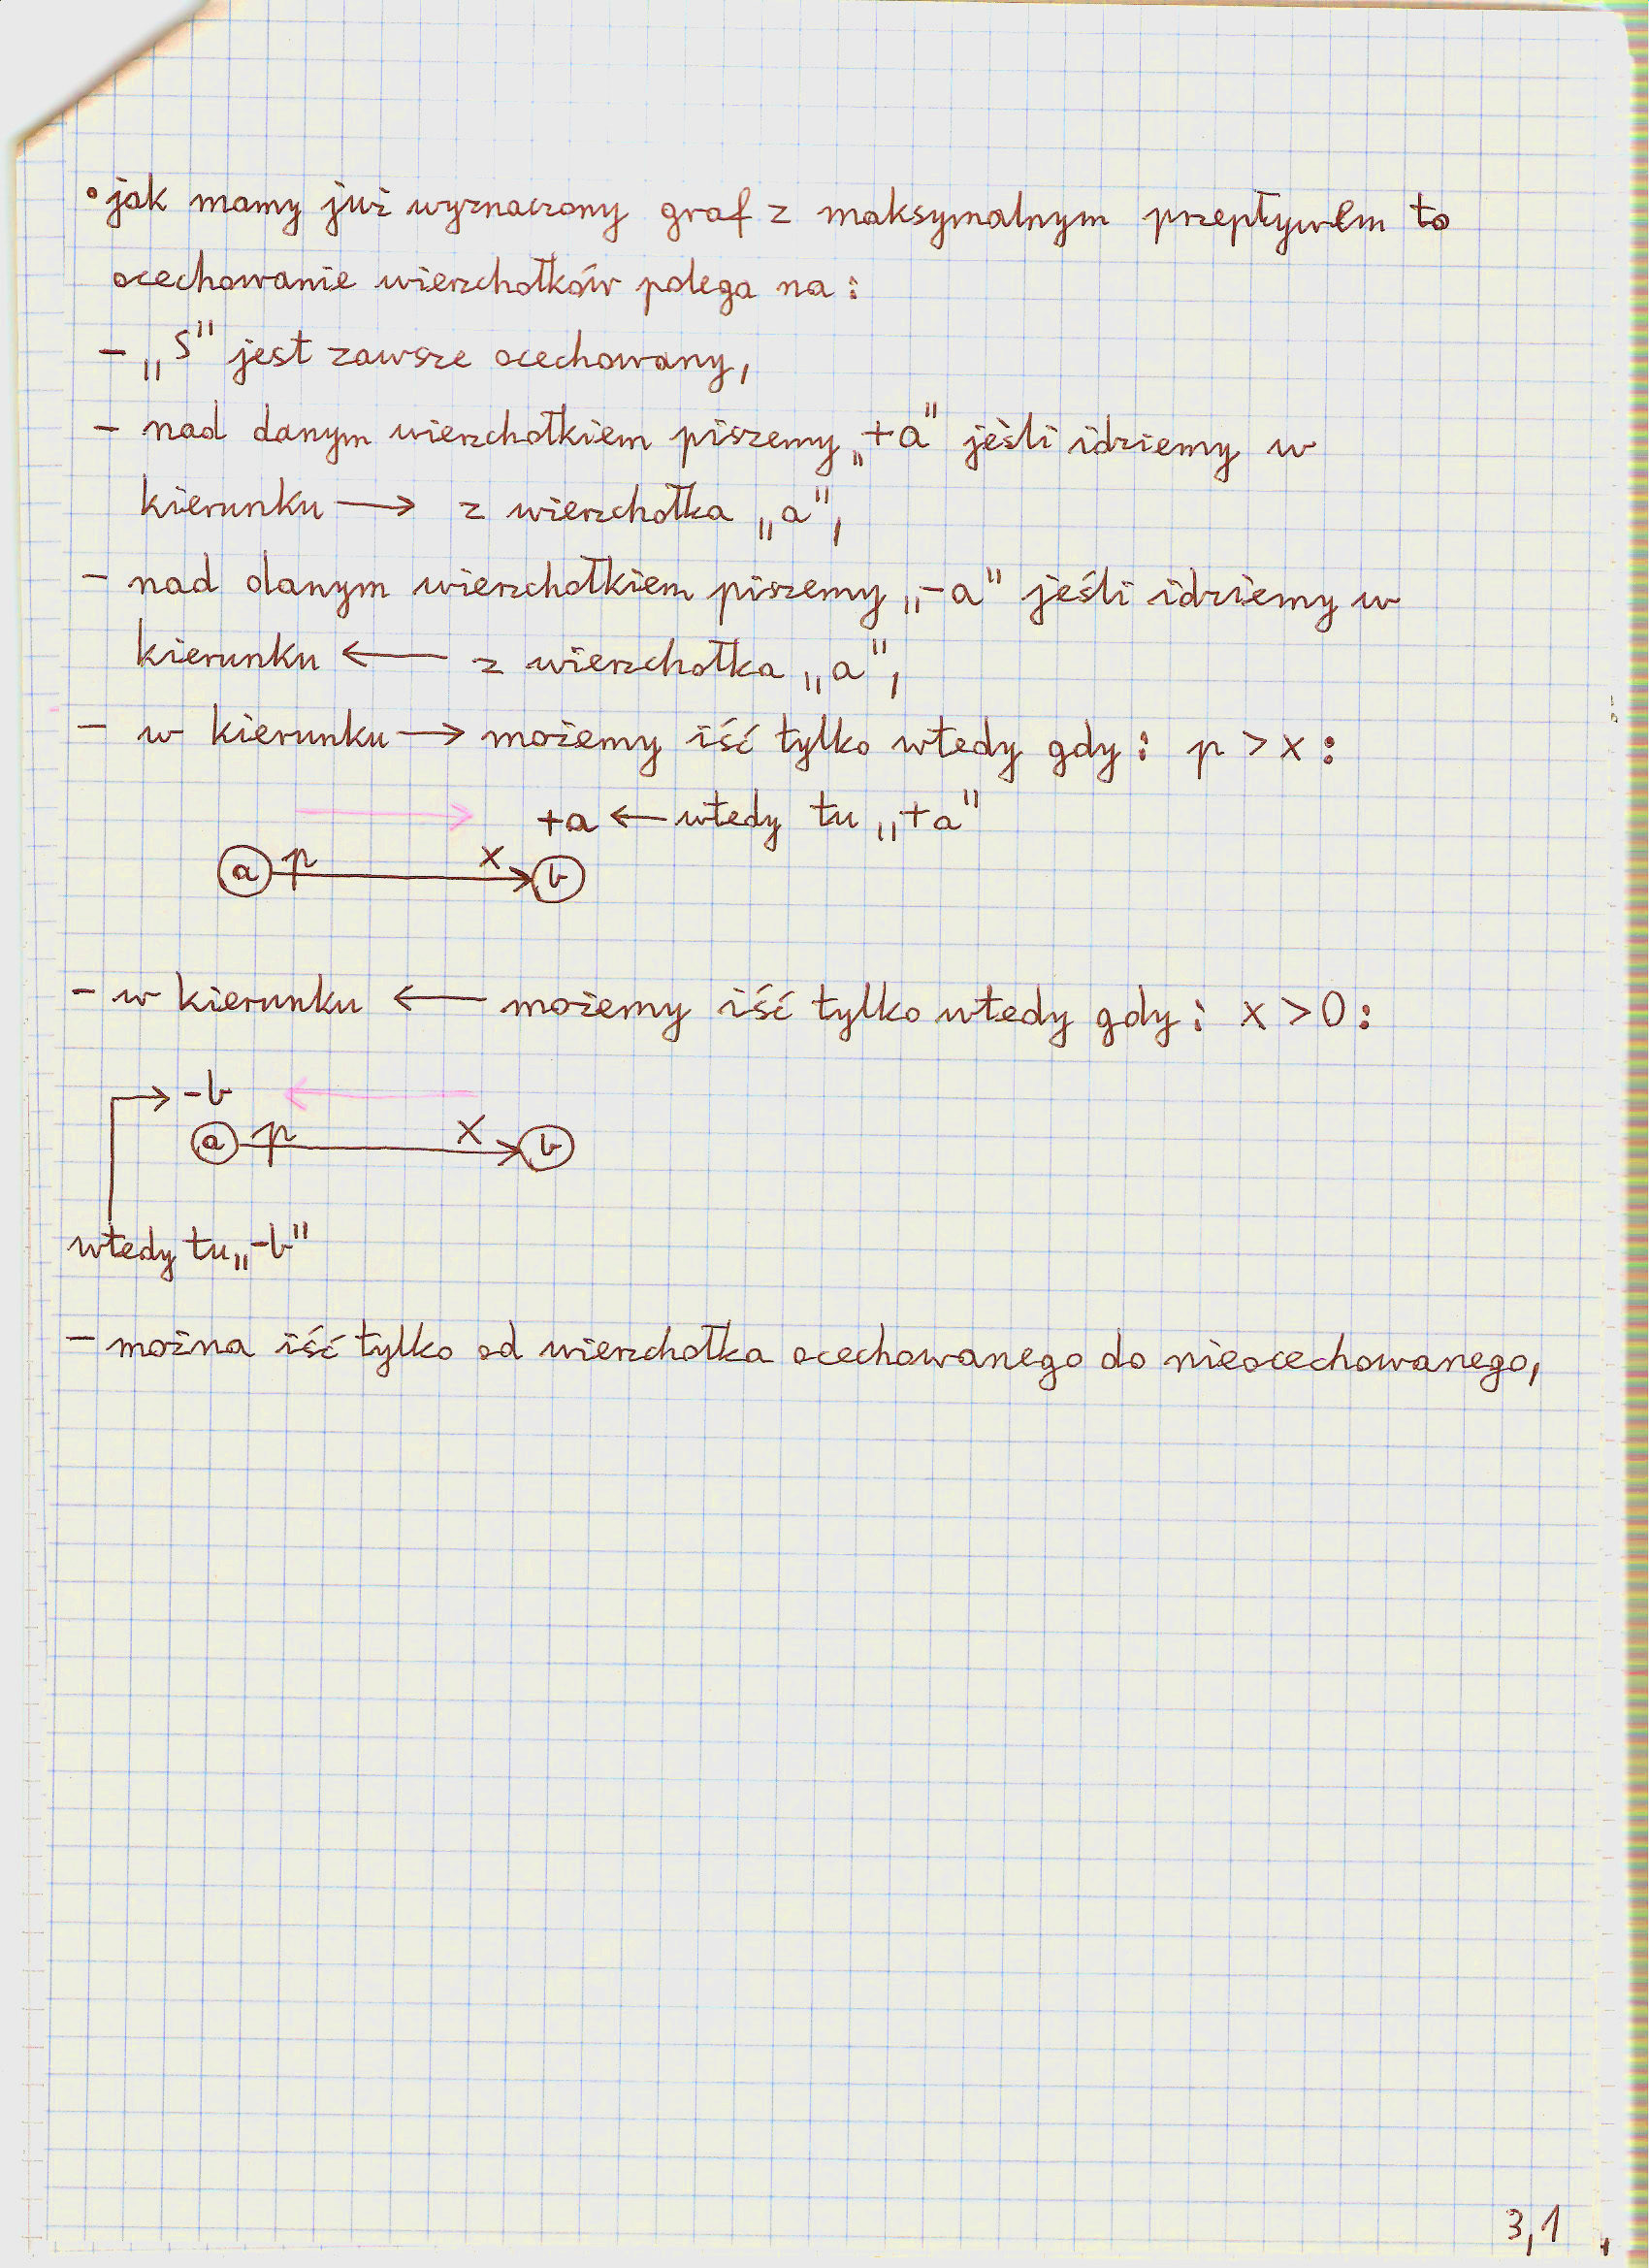 • jak mamy już wyznaczony graf z maksymalnym przepływem to
ocechowanie wierzchołków polega na:
- „s" jest zawsze ocechowany,
- nad danym wierzchołkiem piszemy „+a" jeśli idziemy w
kierunku → z wierzchołka „a",
- nad danym wierzchołkiem piszemy „-a" jeśli idziemy w
kierunku ← z wierzchołka „a",
- w kierunku → możemy iść tylko wtedy gdy: p > x:
+a ← wtedy tu „+a"
a p x b
- w kierunku ← możemy iść tylko wtedy gdy: x > 0:
-b
a p x b
wtedy tu „-b"
- można iść tylko od wierzchołka ocechowanego do nieocechowanego,
3,1